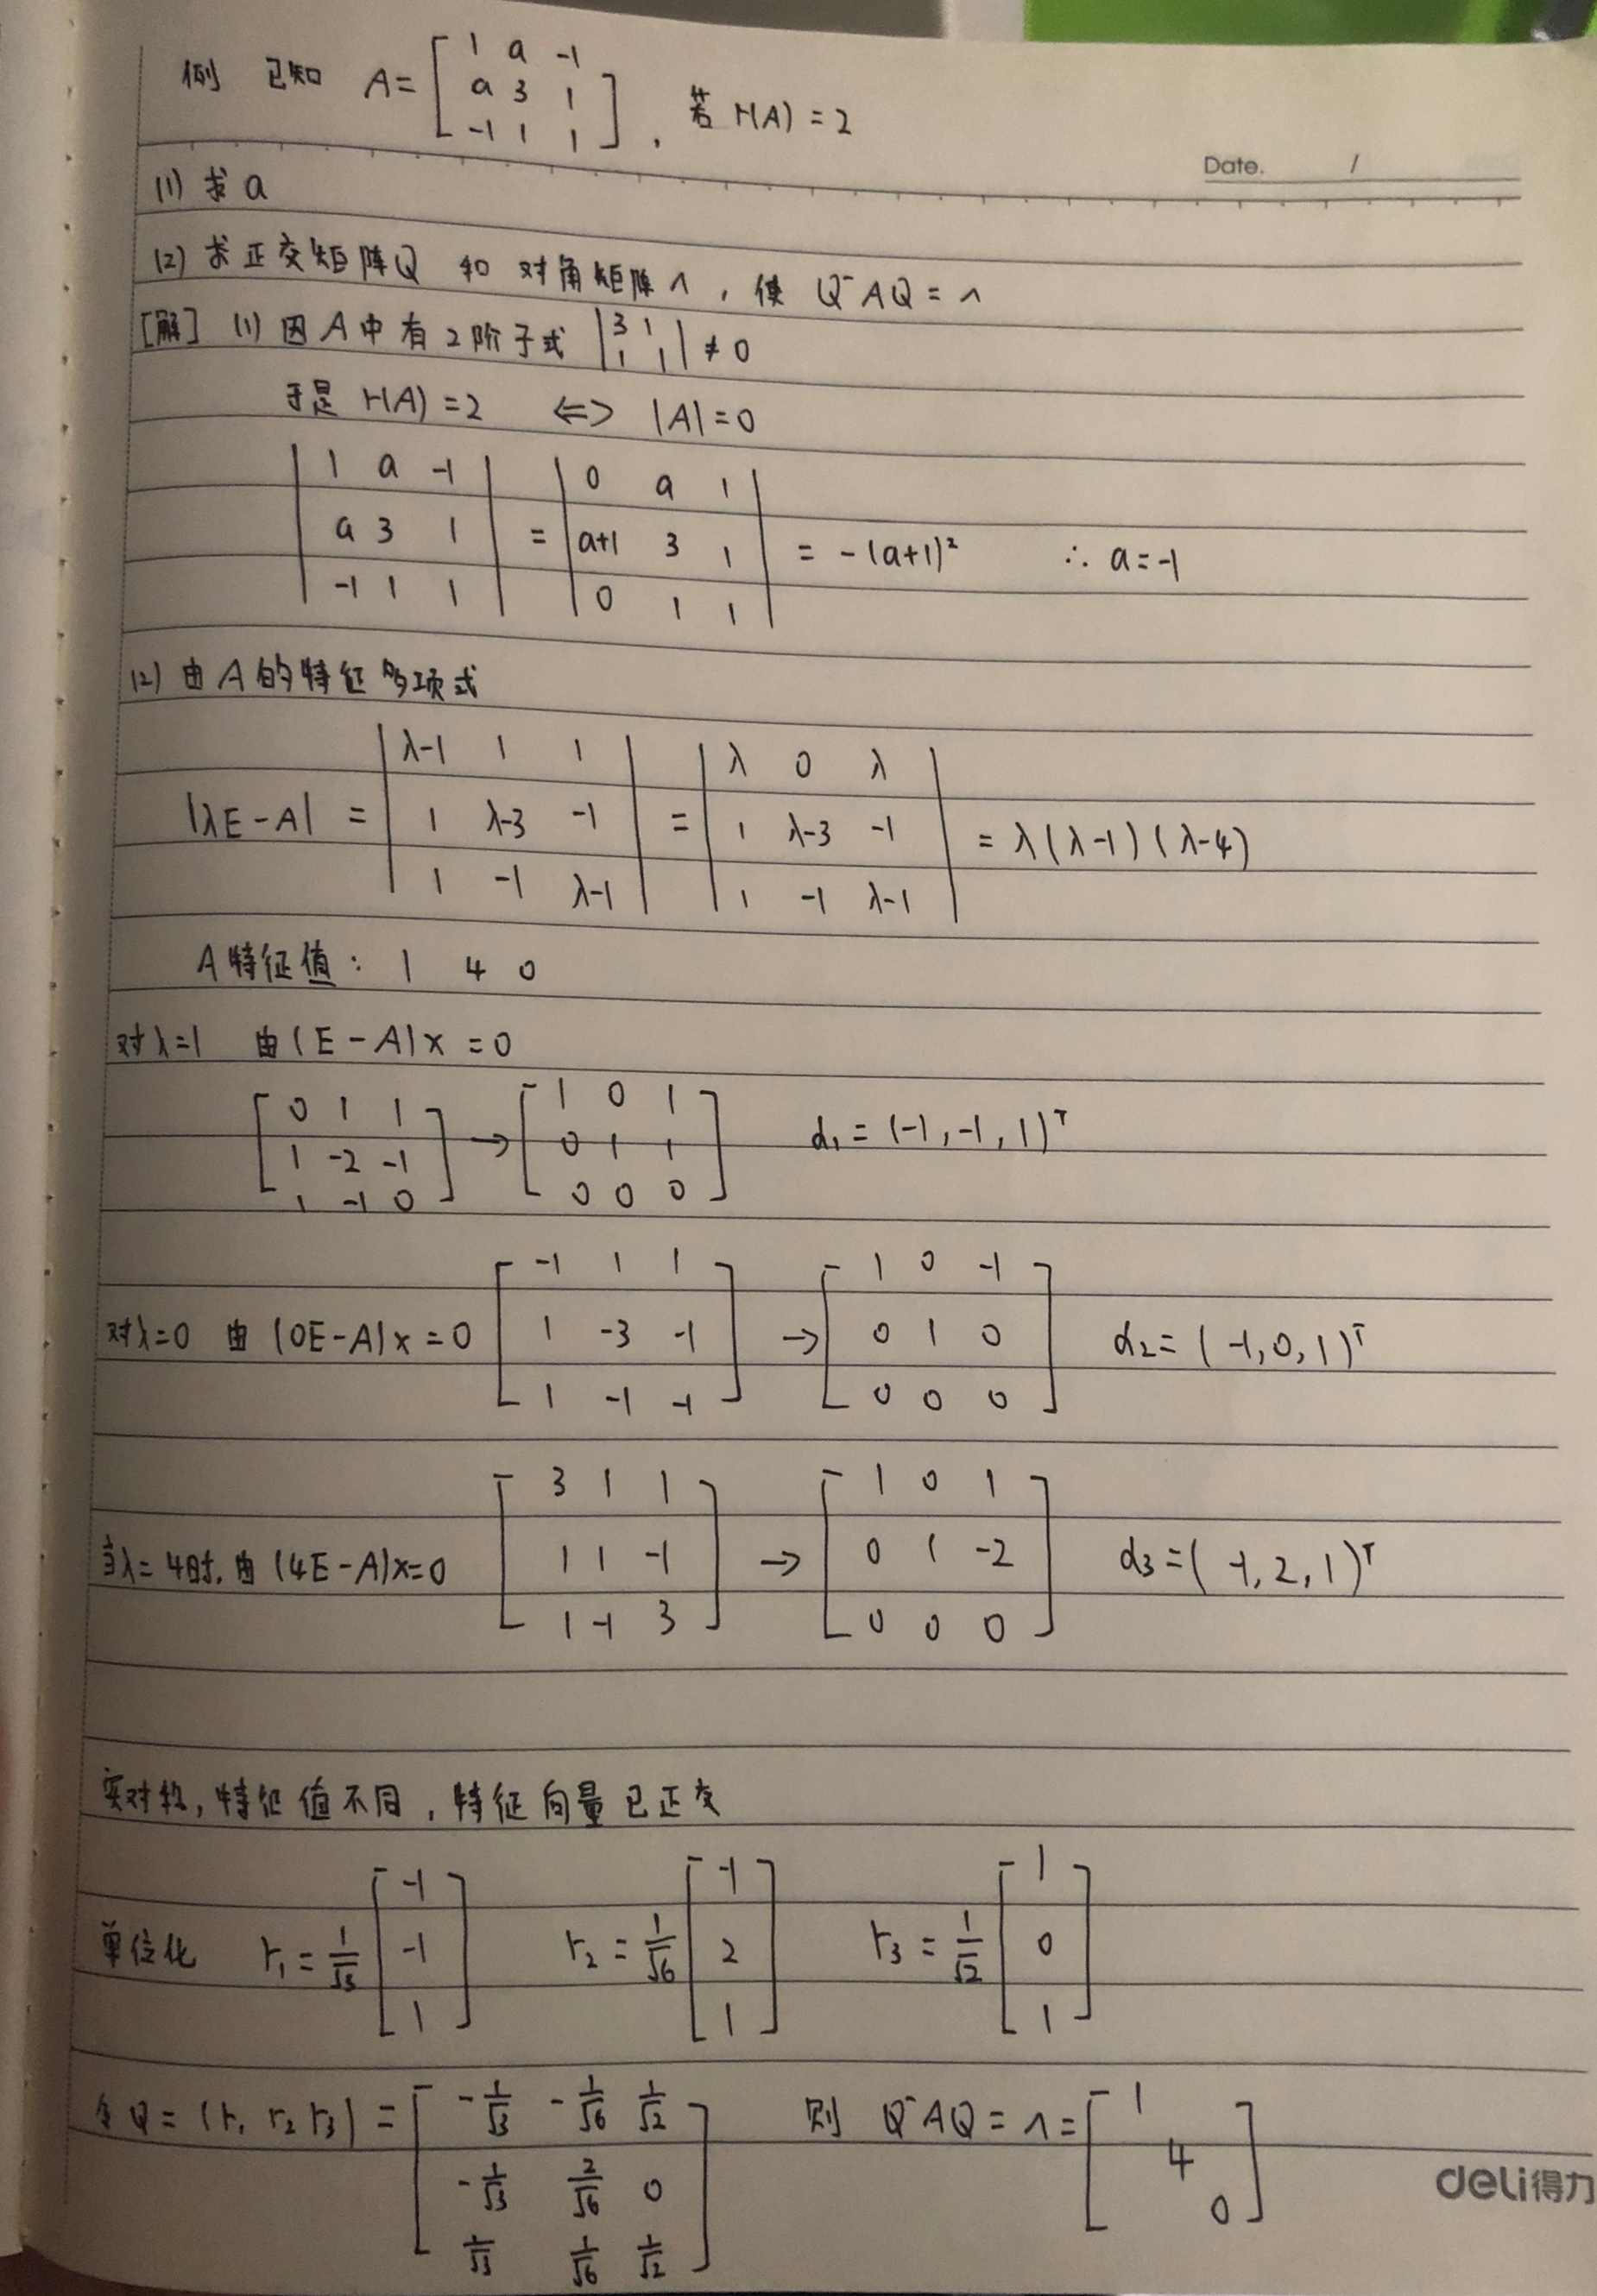 例 已知 A = [ 1 a -1 ; a 3 1 ; -1 1 1 ] , 若 r(A) = 2
Date. /
(1) 求 a
(2) 求正交矩阵Q 和 对角矩阵 Λ , 使 Q⁻AQ = Λ
[解] (1) 因 A 中有 2 阶子式 | 3 1 ; 1 1 | ≠ 0
于是 r(A) = 2 <=> |A| = 0
| 1 a -1 ; a 3 1 ; -1 1 1 | = | 0 a 1 ; a+1 3 1 ; 0 1 1 | = -(a+1)² ∴ a = -1
(2) 由 A 的特征多项式
|λE - A| = | λ-1 1 1 ; 1 λ-3 -1 ; 1 -1 λ-1 | = | λ 0 λ ; 1 λ-3 -1 ; 1 -1 λ-1 | = λ(λ-1)(λ-4)
A 特征值: 1 4 0
对λ=1 由(E-A)x = 0
[ 0 1 1 ; 1 -2 -1 ; 1 -1 0 ] → [ 1 0 1 ; 0 1 1 ; 0 0 0 ] α₁ = (-1, -1, 1)ᵀ
对λ=0 由(0E-A)x = 0 [ -1 1 1 ; 1 -3 -1 ; 1 -1 -1 ] → [ 1 0 -1 ; 0 1 0 ; 0 0 0 ] α₂ = (-1, 0, 1)ᵀ
当λ=4时, 由(4E-A)x=0 [ 3 1 1 ; 1 1 -1 ; 1 -1 3 ] → [ 1 0 1 ; 0 1 -2 ; 0 0 0 ] α₃ = (-1, 2, 1)ᵀ
实对称, 特征值不同, 特征向量已正交
单位化 r₁ = 1/√3 [ -1 ; -1 ; 1 ] r₂ = 1/√6 [ -1 ; 2 ; 1 ] r₃ = 1/√2 [ 1 ; 0 ; 1 ]
令 Q = (r₁ r₂ r₃) = [ -1/√3 -1/√6 1/√2 ; -1/√3 2/√6 0 ; 1/√3 1/√6 1/√2 ] 则 Q⁻AQ = Λ = [ 1 ; 4 ; 0 ]
deli得力